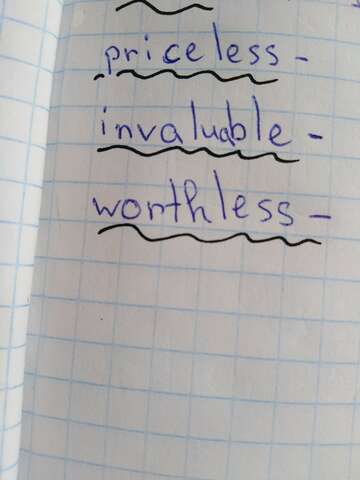 priceless -
invaluable -
worthless -